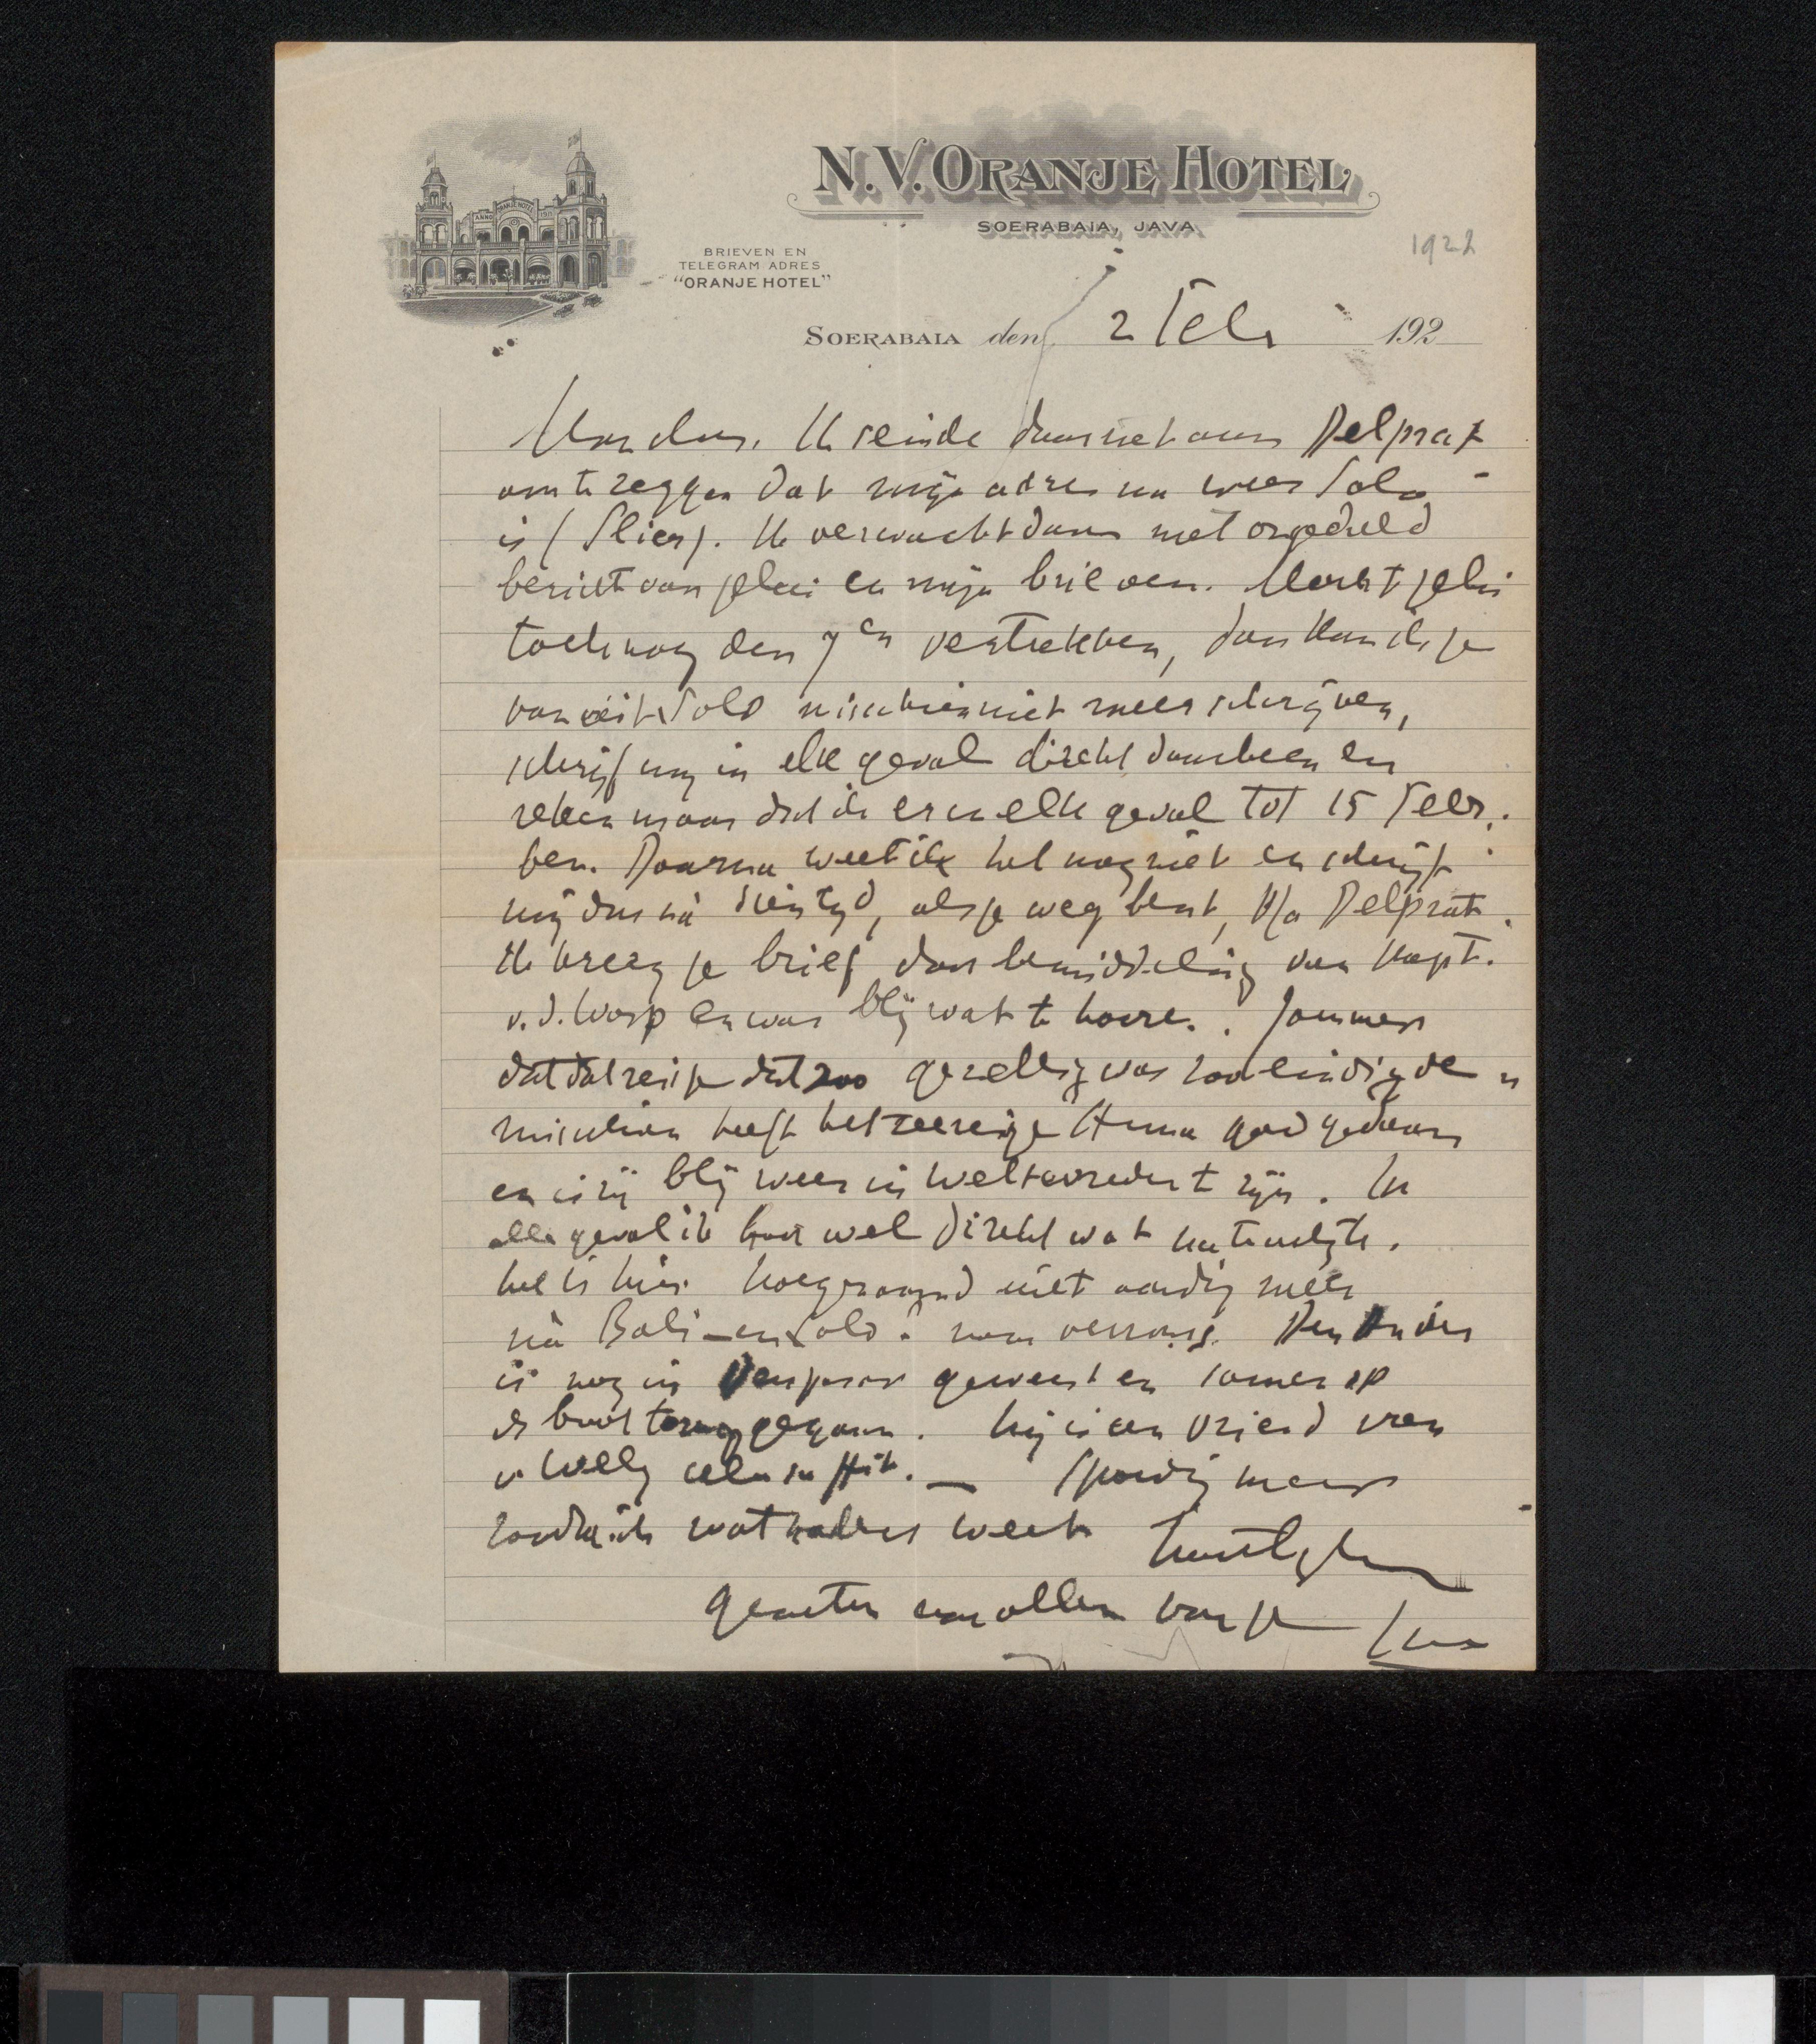 N.V. ORANJE HOTEL
SOERABAIA, JAVA
ANNO ORANJE HOTEL 1911
BRIEVEN EN
TELEGRAM ADRES
"ORANJE HOTEL"
1922
SOERABAIA den 2 Febr 192
Ik seinde daarnet aan Delprat
om te zeggen dat mijn adres nu weer Solo
is (Slier). Ik verwacht dan met ongeduld
bericht van jelui en mijn brieven. Mocht jelui
toch nog den 7en vertrekken, dan kan ik je
vanuit Solo misschien niet meer schrijven,
schrijf mij in elk geval direkt daarheen en
reken maar dat ik er in elk geval tot 15 Febr.
ben. Daarna weet ik het nog niet en schrijf
mij dus ná dien tijd, als je weg bent, p/a Delprat.
Ik kreeg je brief door bemiddeling van Kapt.
v.d. Worp en was blij wat te hooren. Jammer
dat dat reisje dat zoo gezellig was zoo eindigde
misschien heeft het zeereisje Anna goed gedaan
en is zij blij weer in Weltevreden te zijn. In
elk geval ik hoor wel direkt wat natuurlijk.
het is hier hoegenaamd niet aardig meer
ná Bali en Solo.
is nog in Denpasar geweest en samen op
de boot teruggegaan. hij is een vriend van
v. Welly Spoedig meer
zoodra ik wat nader weet hartelijke
groeten van allen van je